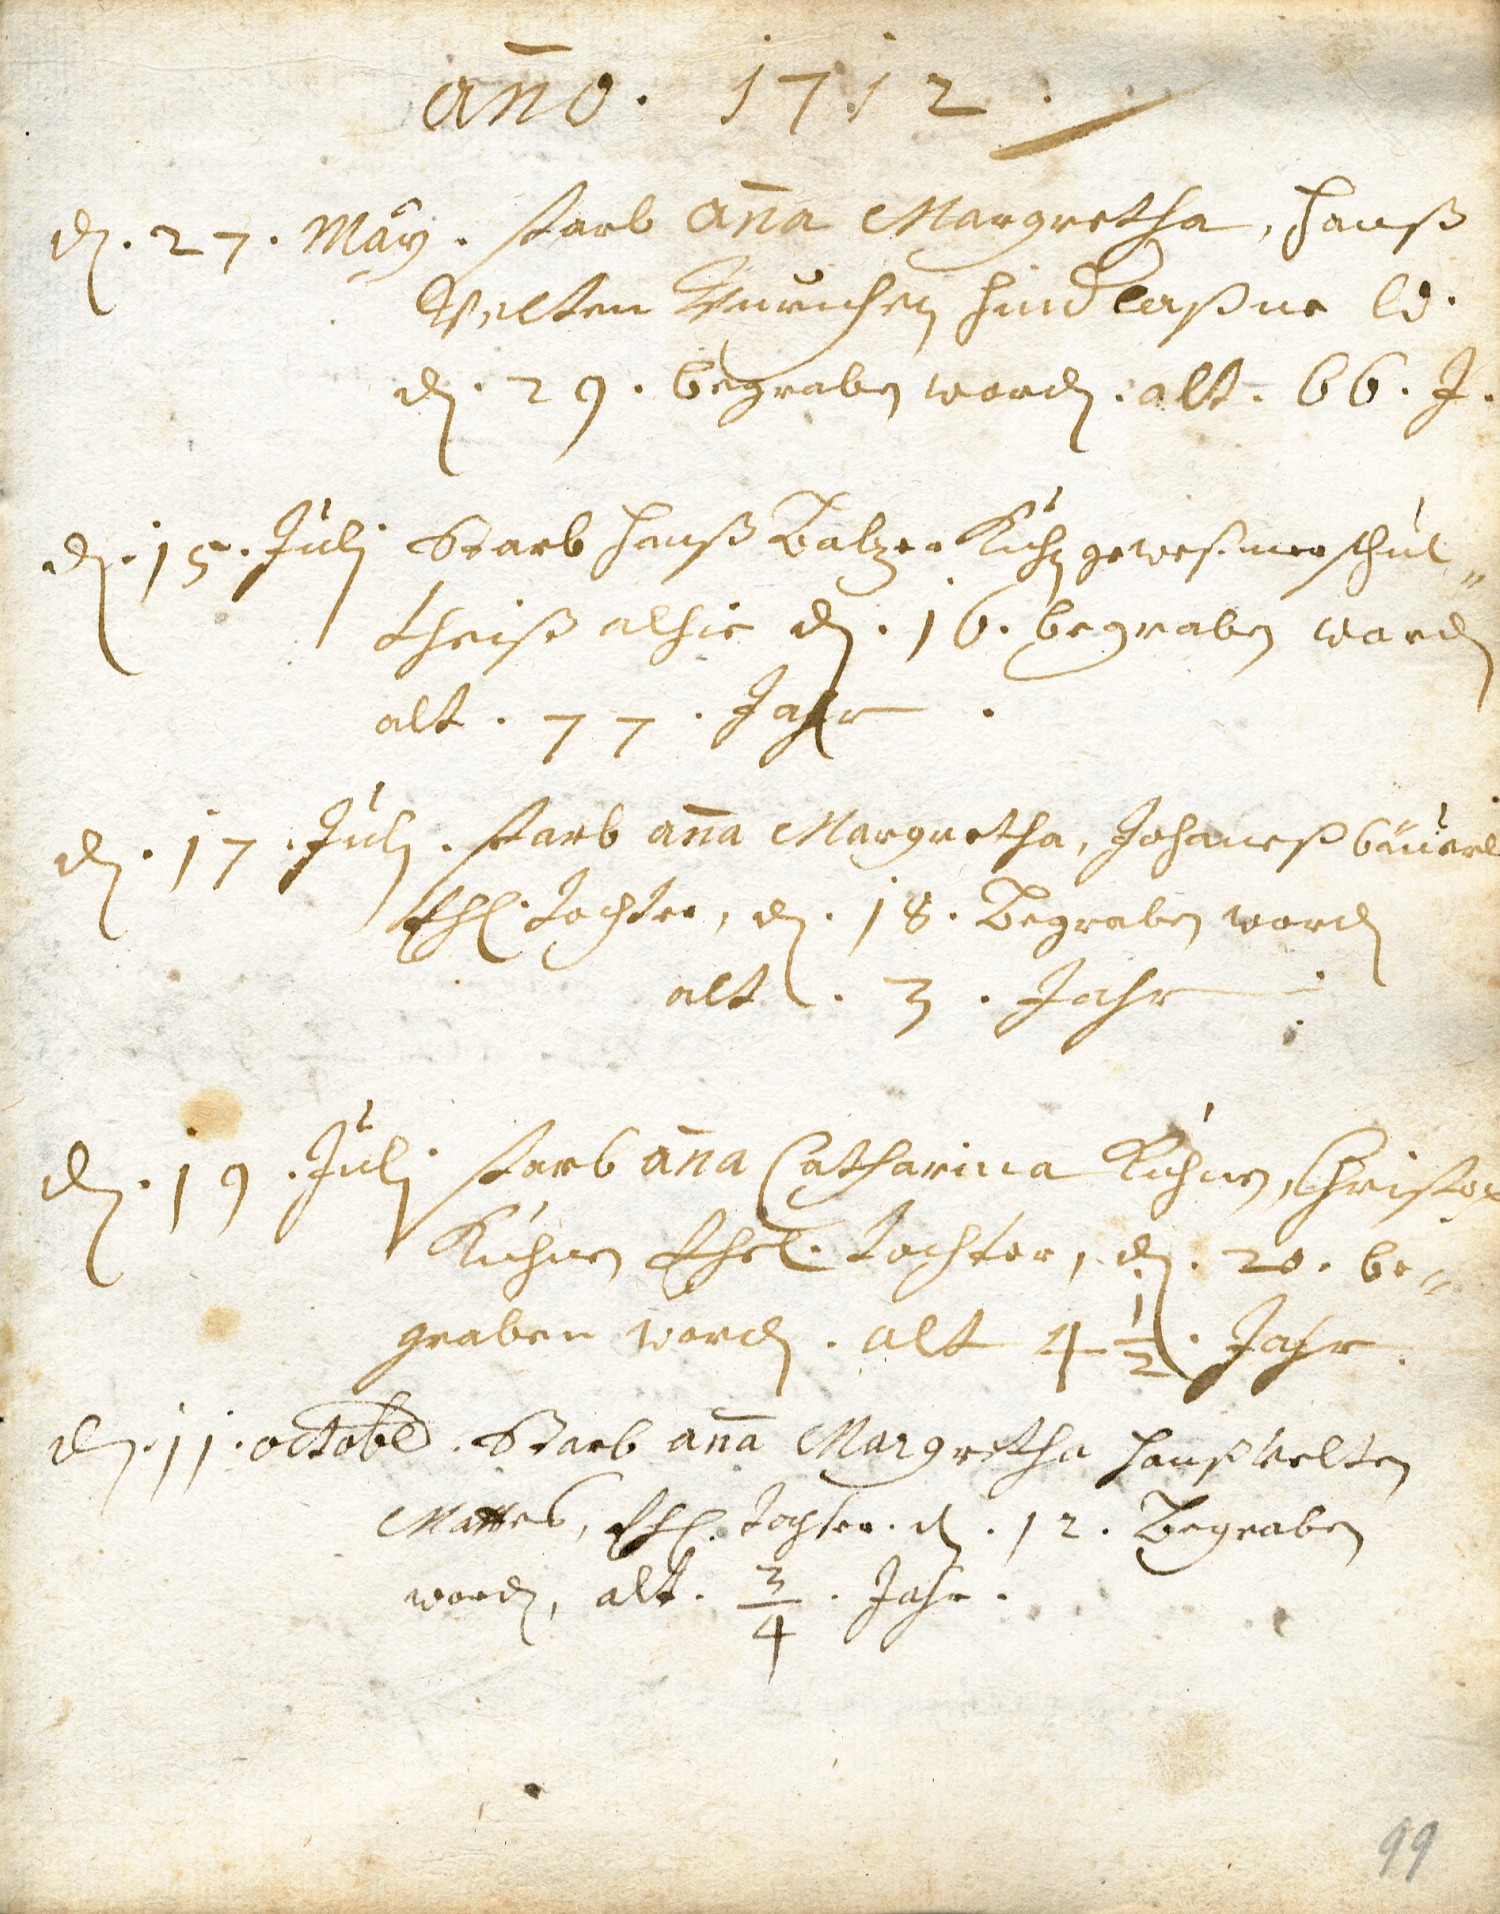 año. 1712.
dℓ. 27. Maÿ. starb Aña Margretha, Hanß
Velten hindlaßne
dℓ. 29. begraben word. alt. 66. J.
dℓ. 15. Julj Starb Hanß Baltzer Kühn geweßener schul„
theiß alhie dℓ. 16. begraben word
alt. 77. Jahr.
dℓ. 17. Julj. starb aña Margretha, Johaneß bäuerl
Ehl. Tochter, dℓ. 18. Begraben word
alt. 3. Jahr
dℓ. 19. Julj starb aña Catharina Kühnen, Christop
Kühnen Ehel. Tochter, dℓ. 20. be„
graben word. alt 4 1/2. Jahr.
dℓ. 11. octobr. Starb aña Margretha Hanß Velten
Mattes, Ehl. Tochter. dℓ. 12. Begraben
word, alt. 3/4. Jahr.
99